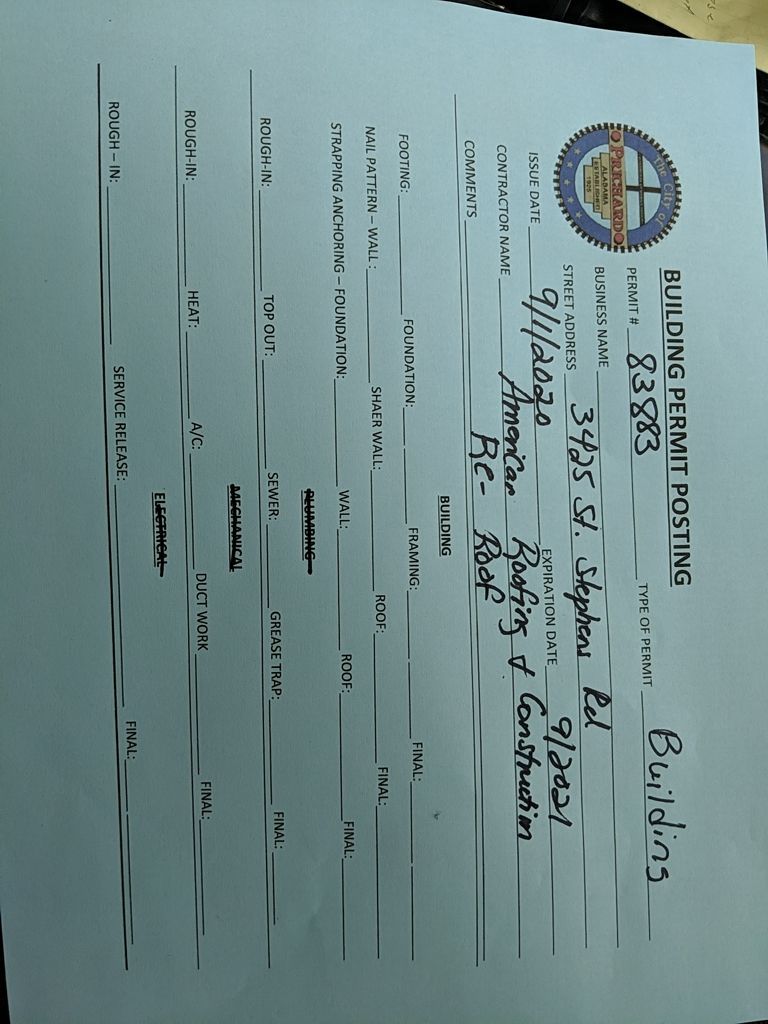 The City of
PRICHARD
ALABAMA
ESTABLISHED
1925
BUILDING PERMIT POSTING
PERMIT # 83883 TYPE OF PERMIT Building
BUSINESS NAME
STREET ADDRESS 3425 St. Stephens Rd
ISSUE DATE 9/1/2020 EXPIRATION DATE 9/2021
CONTRACTOR NAME American Roofing & Construction
COMMENTS Re-Roof
BUILDING
FOOTING: FOUNDATION: FRAMING: FINAL:
NAIL PATTERN – WALL : SHAER WALL: ROOF: FINAL:
STRAPPING ANCHORING – FOUNDATION: WALL: ROOF: FINAL:
PLUMBING
ROUGH-IN: TOP OUT: SEWER: GREASE TRAP: FINAL:
MECHANICAL
ROUGH-IN: HEAT: A/C: DUCT WORK FINAL:
ELECTRICAL
ROUGH – IN: SERVICE RELEASE: FINAL: